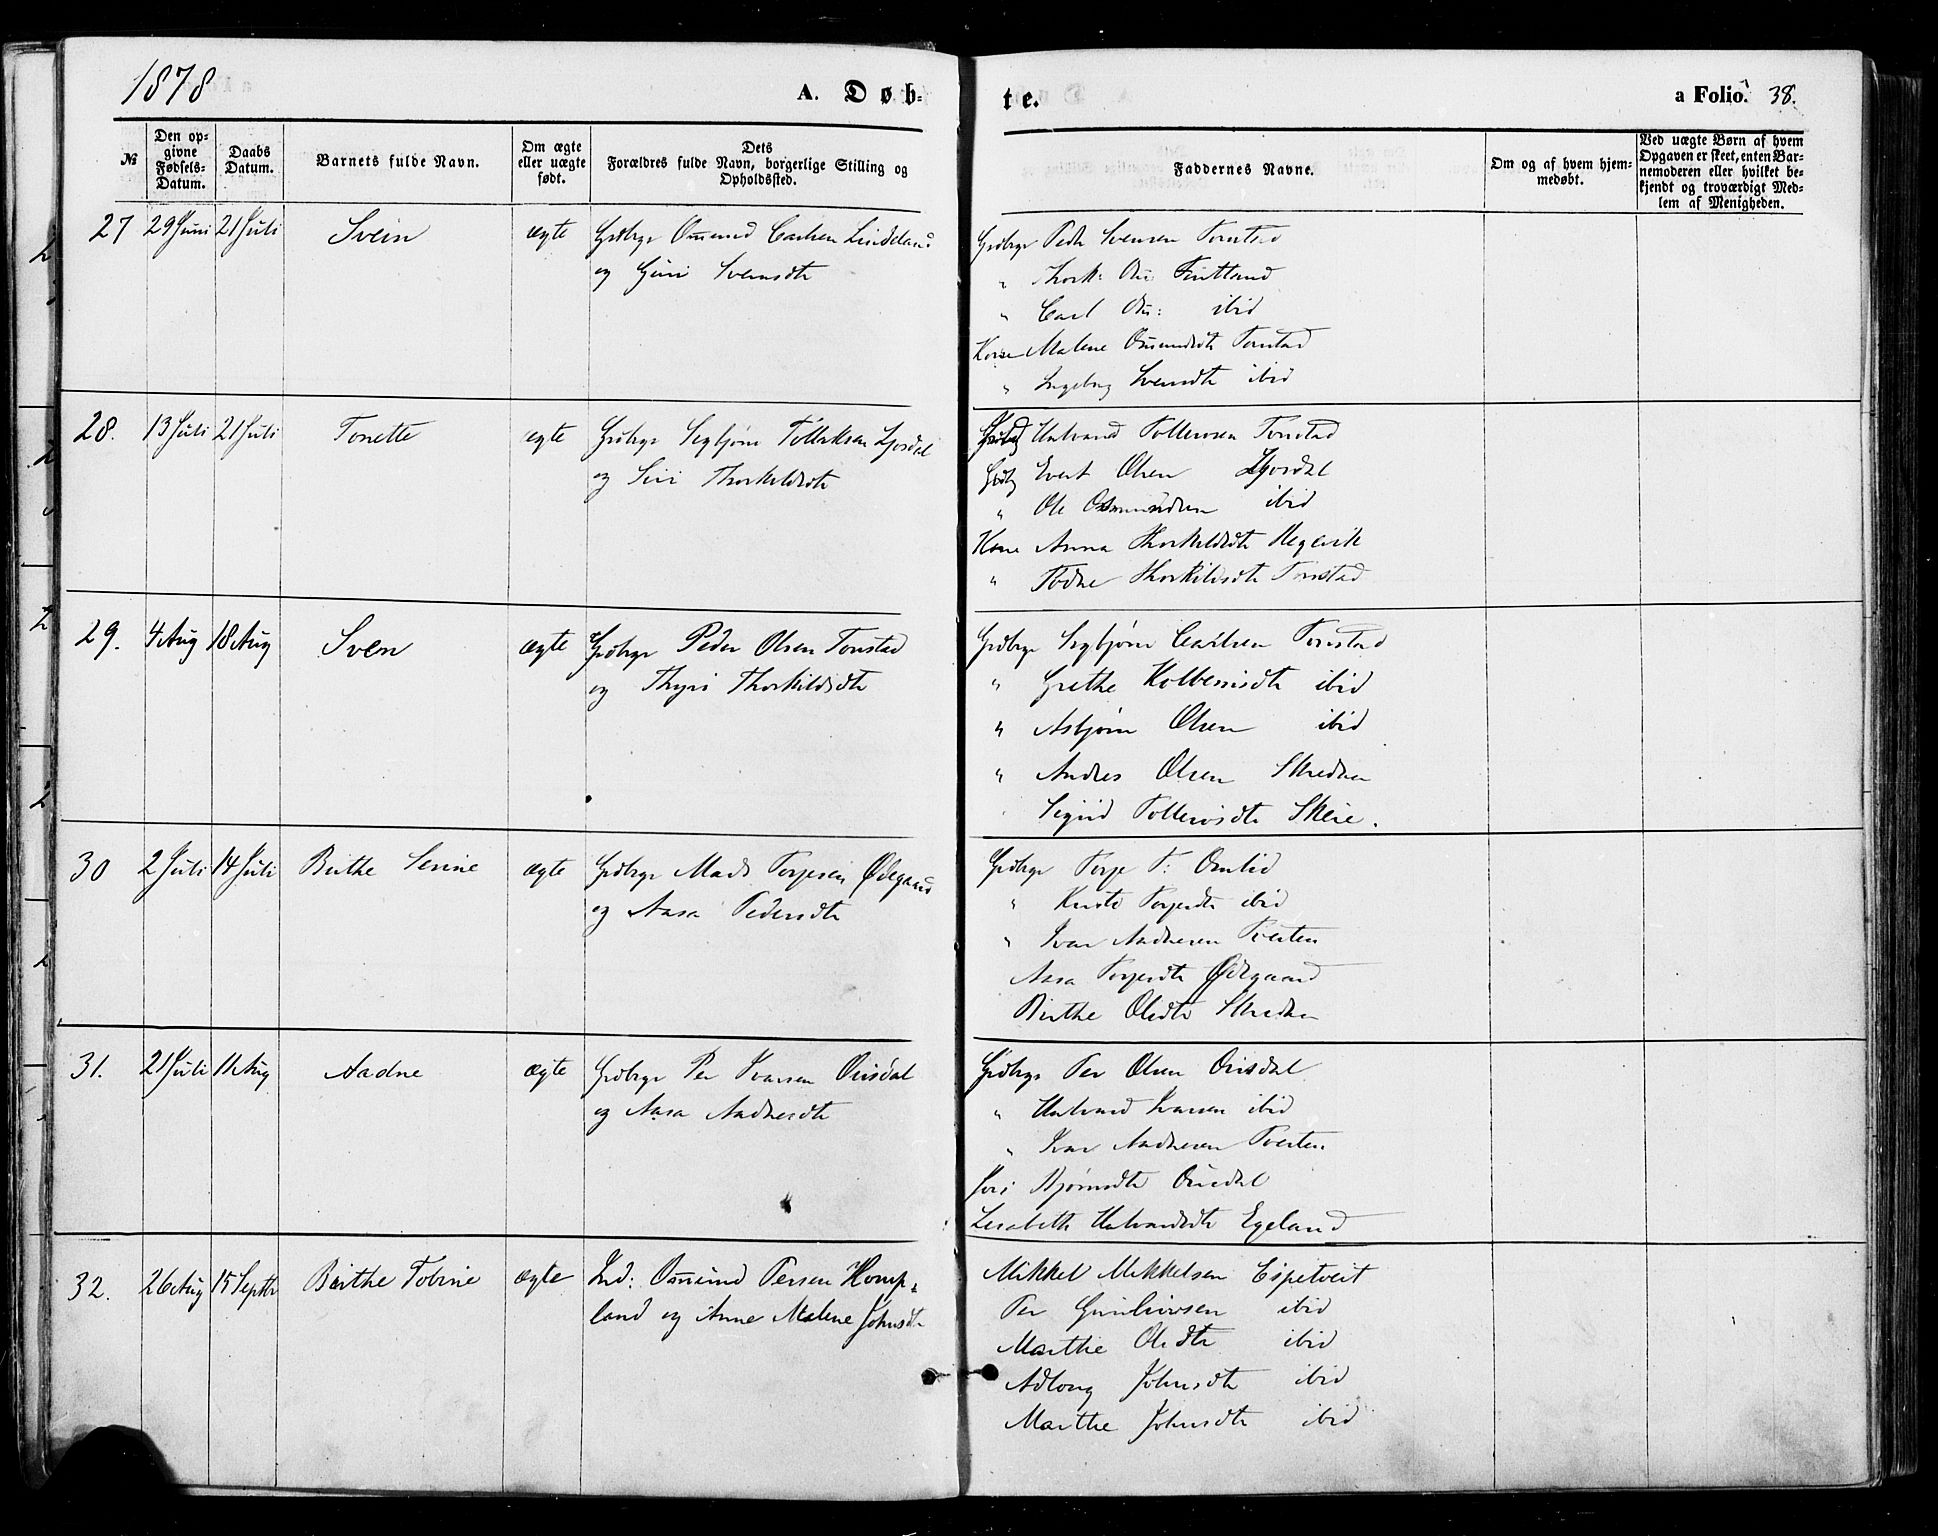 1878
A. Døb-
te.
a Folio. 38.
№
Den op-
givne
Fødsels-
Datum.
Daabs
Datum.
Barnets fulde Navn.
Om ægte
eller uægte
født.
Dets
Forældres fulde Navn, borgerlige Stilling og
Opholdssted.
Faddernes Navne.
Om og af hvem hjem-
medøbt.
Ved uægte Børn af hvem
Opgaven er skeet, enten Bar-
nemoderen eller hvilket be-
kjendt og troværdigt Med-
lem af Menigheden.
27 29 Juni 21 Juli Svein ægte Grdbrgr Omund Carlsen Lindeland
og Guri Svensdtr
Grdbrgr Peder Svensen Tonstad
" Thork: Om: Fintland
" Carl Om: ibid
Kone Malene Omundsdtr Tonstad
" Ingebrg Svensdtr ibid
28. 13 Juli 21 Juli Tonette ægte Grdbrgr Segbjørn Tollerksen Josdal
og Siri Thorkildsdtr
Halvard Tollevsen Tonstad
Grdbg Evert Olsen Josdal
" Ole Osmundsen ibid
Kone Anna Thorkildsdtr Hegevik
" Thorkildsdtr Tonstad
29. 4 Aug 18 Aug Sven ægte Grdbrgr Peder Olsen Tonstad
og Thyri Thorkildsdtr
Grdbrgr Segbjørn Carlsen Tonstad
" Grethe Kolbensdtr ibid
" Asbjørn Olsen ibid
" Andres Olsen Skreden
Sigrid Tollevsdtr Skeie.
30 2 Juli 14 Juli Birthe Serine ægte Grdbrgr Mads Torjesen Ødegaard
og Aasa Pedersdtr
Grdbrgr Torje T: Omlid
" Torjesdtr ibid
" Ivar Aadnesen Tveiten
Aasa Torjesdtr Ødegaard
Birthe Olsdtr Skreden
31. 21 Juli 11 Aug Aadne ægte Grdbrgr Per Ivarsen Ousdal
og Aasa Aadnesdtr
Grdbrgr Per Olsen Ousdal
" Halvard Ivarsen ibid
" Ivar Aadnesen Tveiten
Bjørnsdtr Ousdal
Lisabeth Halvardsdtr Egeland
32. 26 Aug 15 Septbr Birthe Tobine ægte Ind: Omund Persen Homp-
land og Anne Malene Johnsdtr
Mikkel Mikkelsen Espetveit
Per Gunluvsen ibid
Marthe Olsdtr ibid
Adlong Johnsdtr ibid
Marthe Johnsdtr ibid